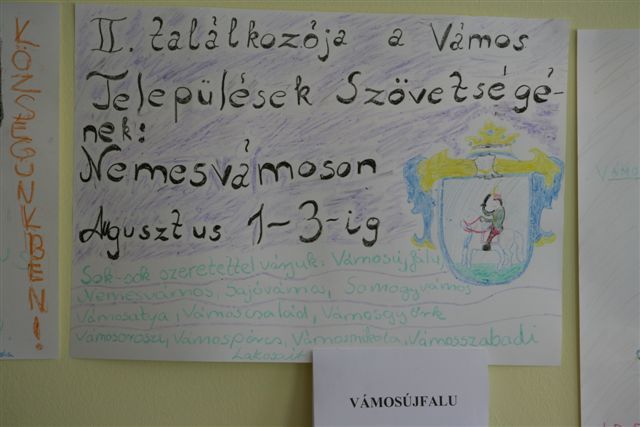 II. találkozója a Vámos
Települések Szövetségé-
nek:
Nemesvámoson
Augusztus 1-3-ig
Sok-sok szeretettel várjuk: Vámosújfalu,
Nemesvámos, Sajóvámos, Somogyvámos
Vámosatya, Vámoscsalád, Vámosgyörk
Vámosoroszi, Vámospércs, Vámosmikola, Vámosszabadi
VÁMOSÚJFALU
KÖZSÉGÜNKBEN!